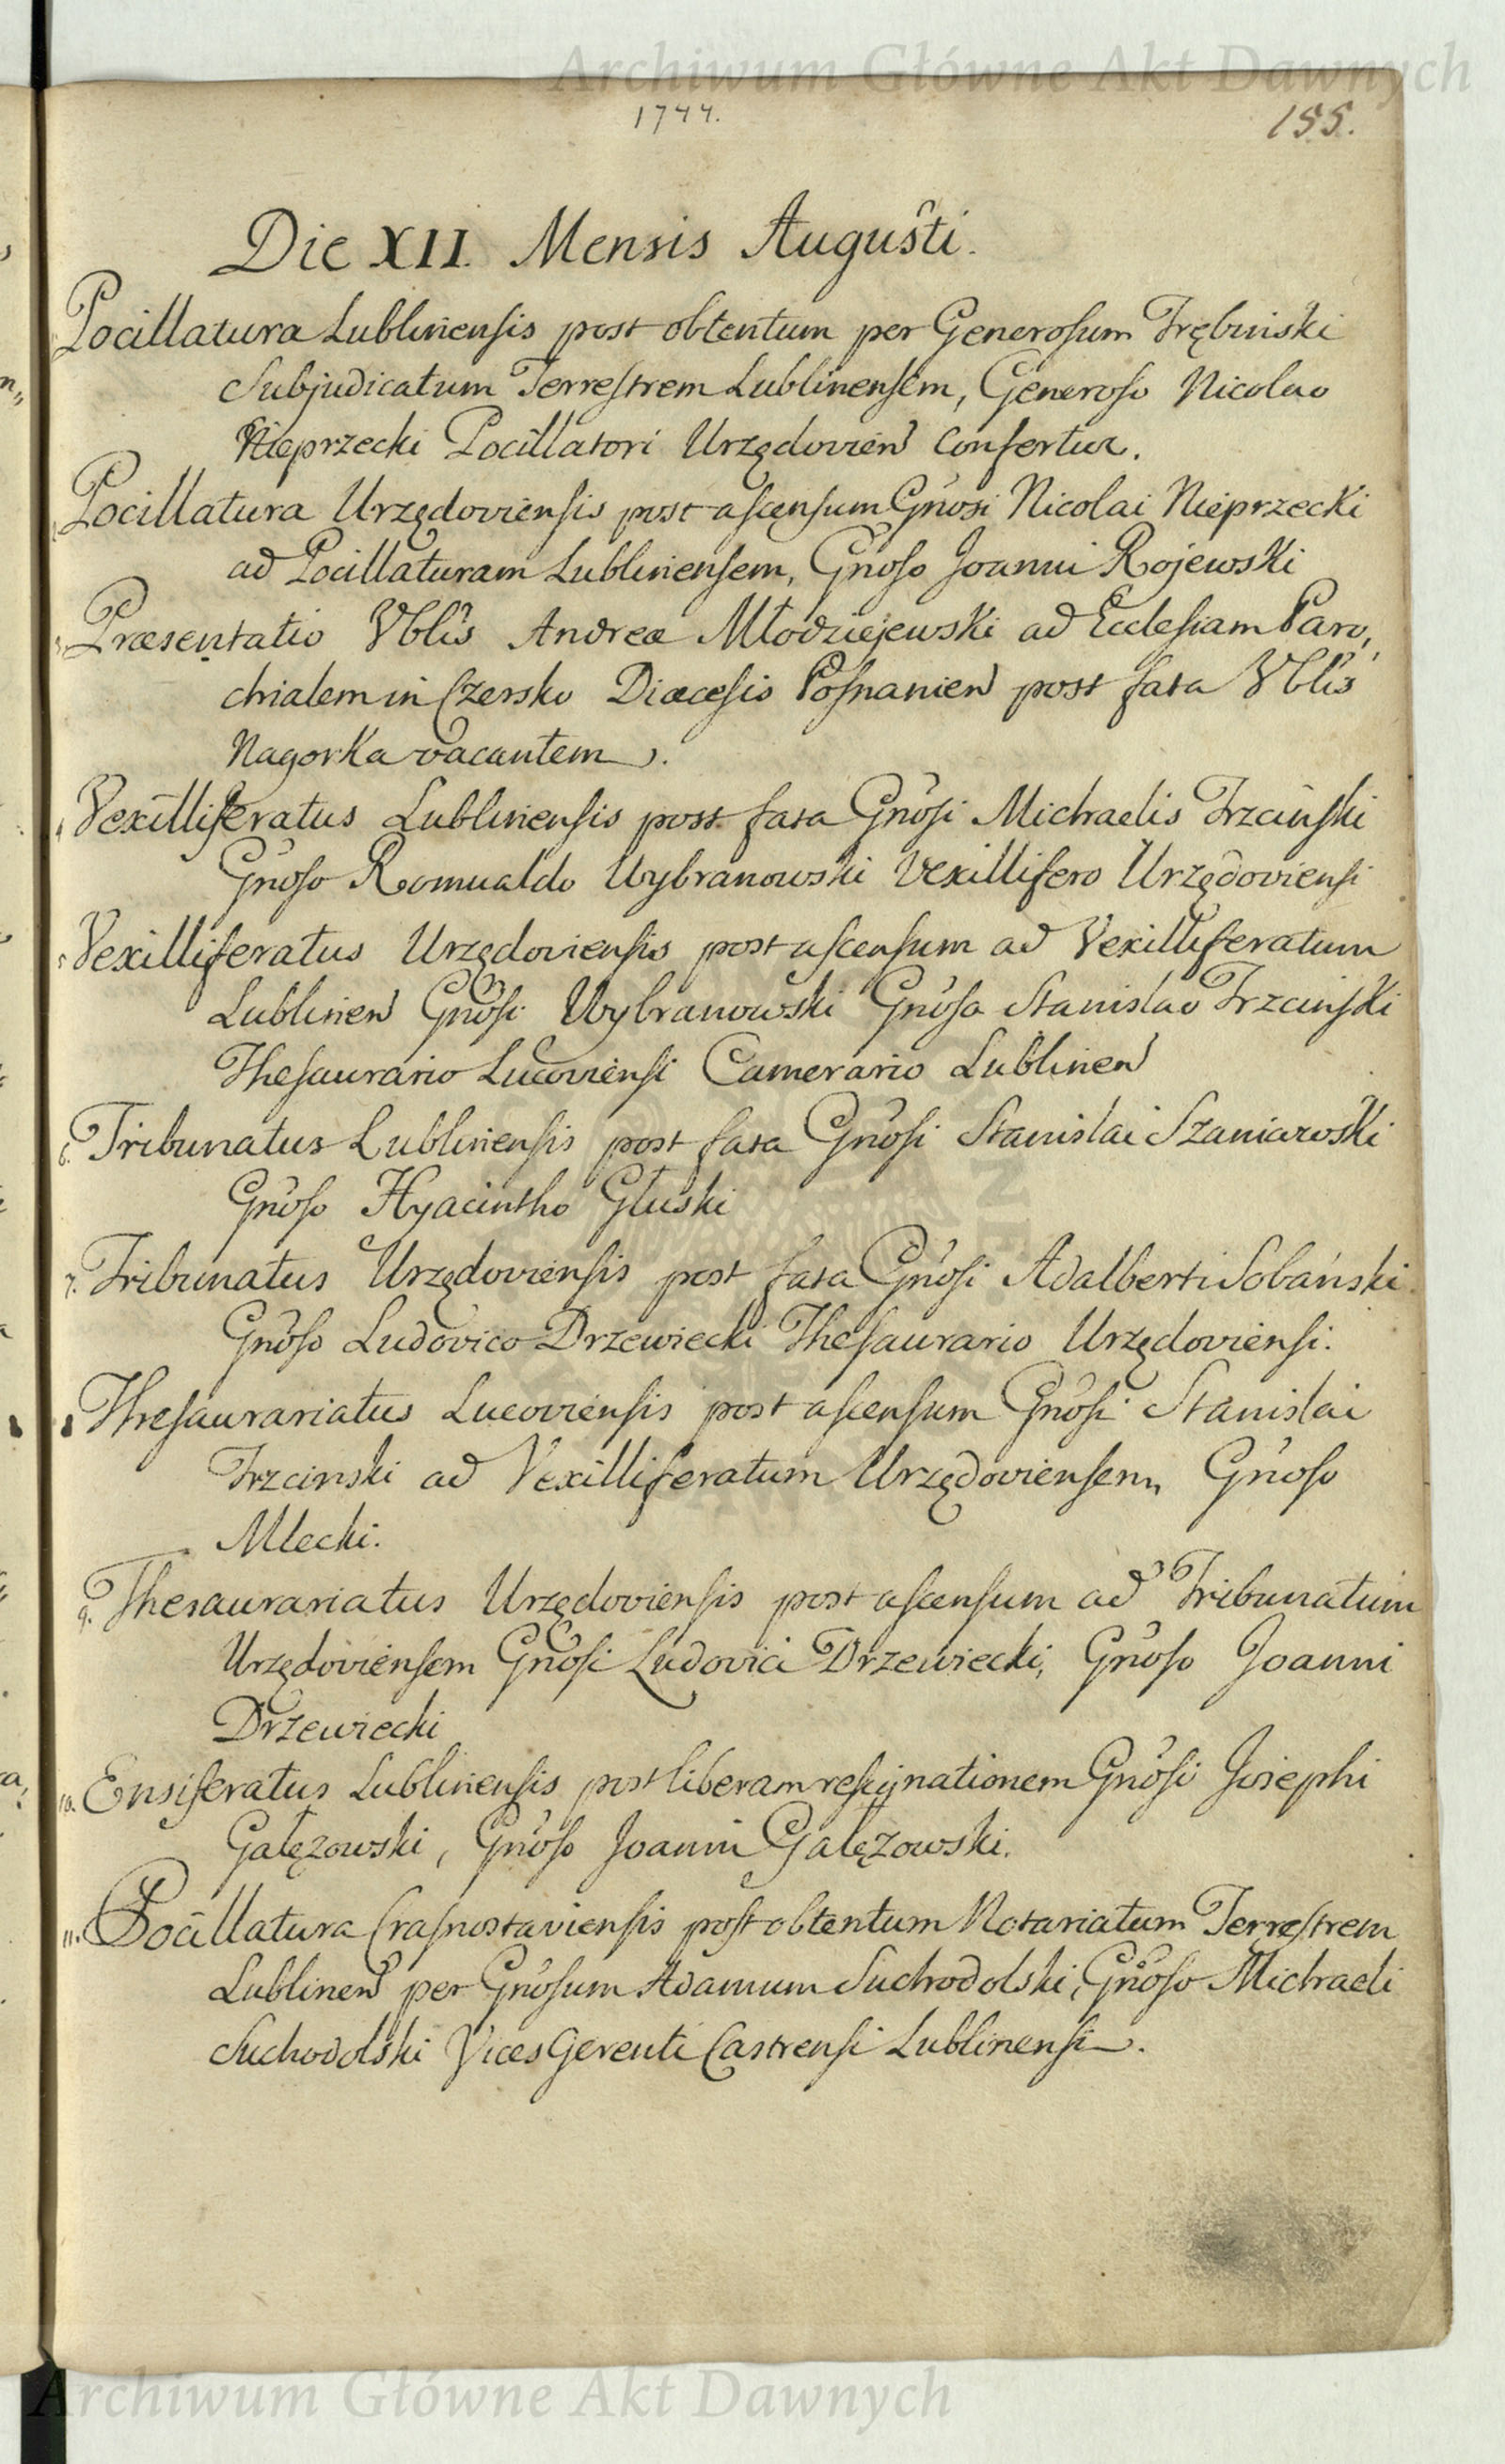 Archiwum Główne Akt Dawnych
1744.
155.
Die XII. Mensis Augusti.
Pocillatura Lublinensis post obtentum per Generosum Trębinski
Subjudicatum Terrestrem Lublinensem, Generoso Nicolao
Nieprzecki Pocillatori Urzędovien Confertur.
Pocillatura Urzędoviensis post ascensum Gnosi Nicolai Nieprzecki
ad Pocillaturam Lublinensem, Gnoso Joanni Rojewski
3. Præsentatio Vblis Andreæ Młodziejewski ad Ecclesiam Paro,,
chialem in Czersko Diæcesis Posnanien post fata Vblis
Nagorka vacantem.
4. Vexilliferatus Lublinensis post fata Gnosi Michaelis Trzcinski
Gnoso Romualdo Wybranowski Vexillifero Urzędoviensi
5. Vexilliferatus Urzędoviensis post ascensum ad Vexilliferatum
Lublinen Gnosi Wybranowski Gnoso Stanislao Trzcinski
Thesaurario Lucoviensi Camerario Lublinen
6. Tribunatus Lublinensis post fata Gnosi Stanislai Szaniawski
Gnoso Hyacintho Głuski
7. Tribunatus Urzędoviensis post fata Gnosi Adalberti Sobański
Gnoso Ludovico Drzewiecki Thesaurario Urzędoviensi.
8 Thesaurariatus Lucoviensis post ascensum Gnosi Stanislai
Trzcinski ad Vexilliferatum Urzędoviensem, Gnoso
Mlecki.
9. Thesaurariatus Urzędoviensis post ascensum ad Tribunatum
Urzędoviensem Gnosi Ludovici Drzewiecki, Gnoso Joanni
Drzewiecki
10. Ensiferatus Lublinensis post liberam resignationem Gnosi Josephi
Gałęzowski, Gnoso Joanni Gałęzowski.
11. Pocillatura Crasnostaviensis post obtentum Notariatum Terrestrem
Lublinen per Gnosum Adamum Suchodolski, Gnoso Michaeli
Suchodolski Vices Gerenti Castrensi Lublinensi.
Archiwum Główne Akt Dawnych